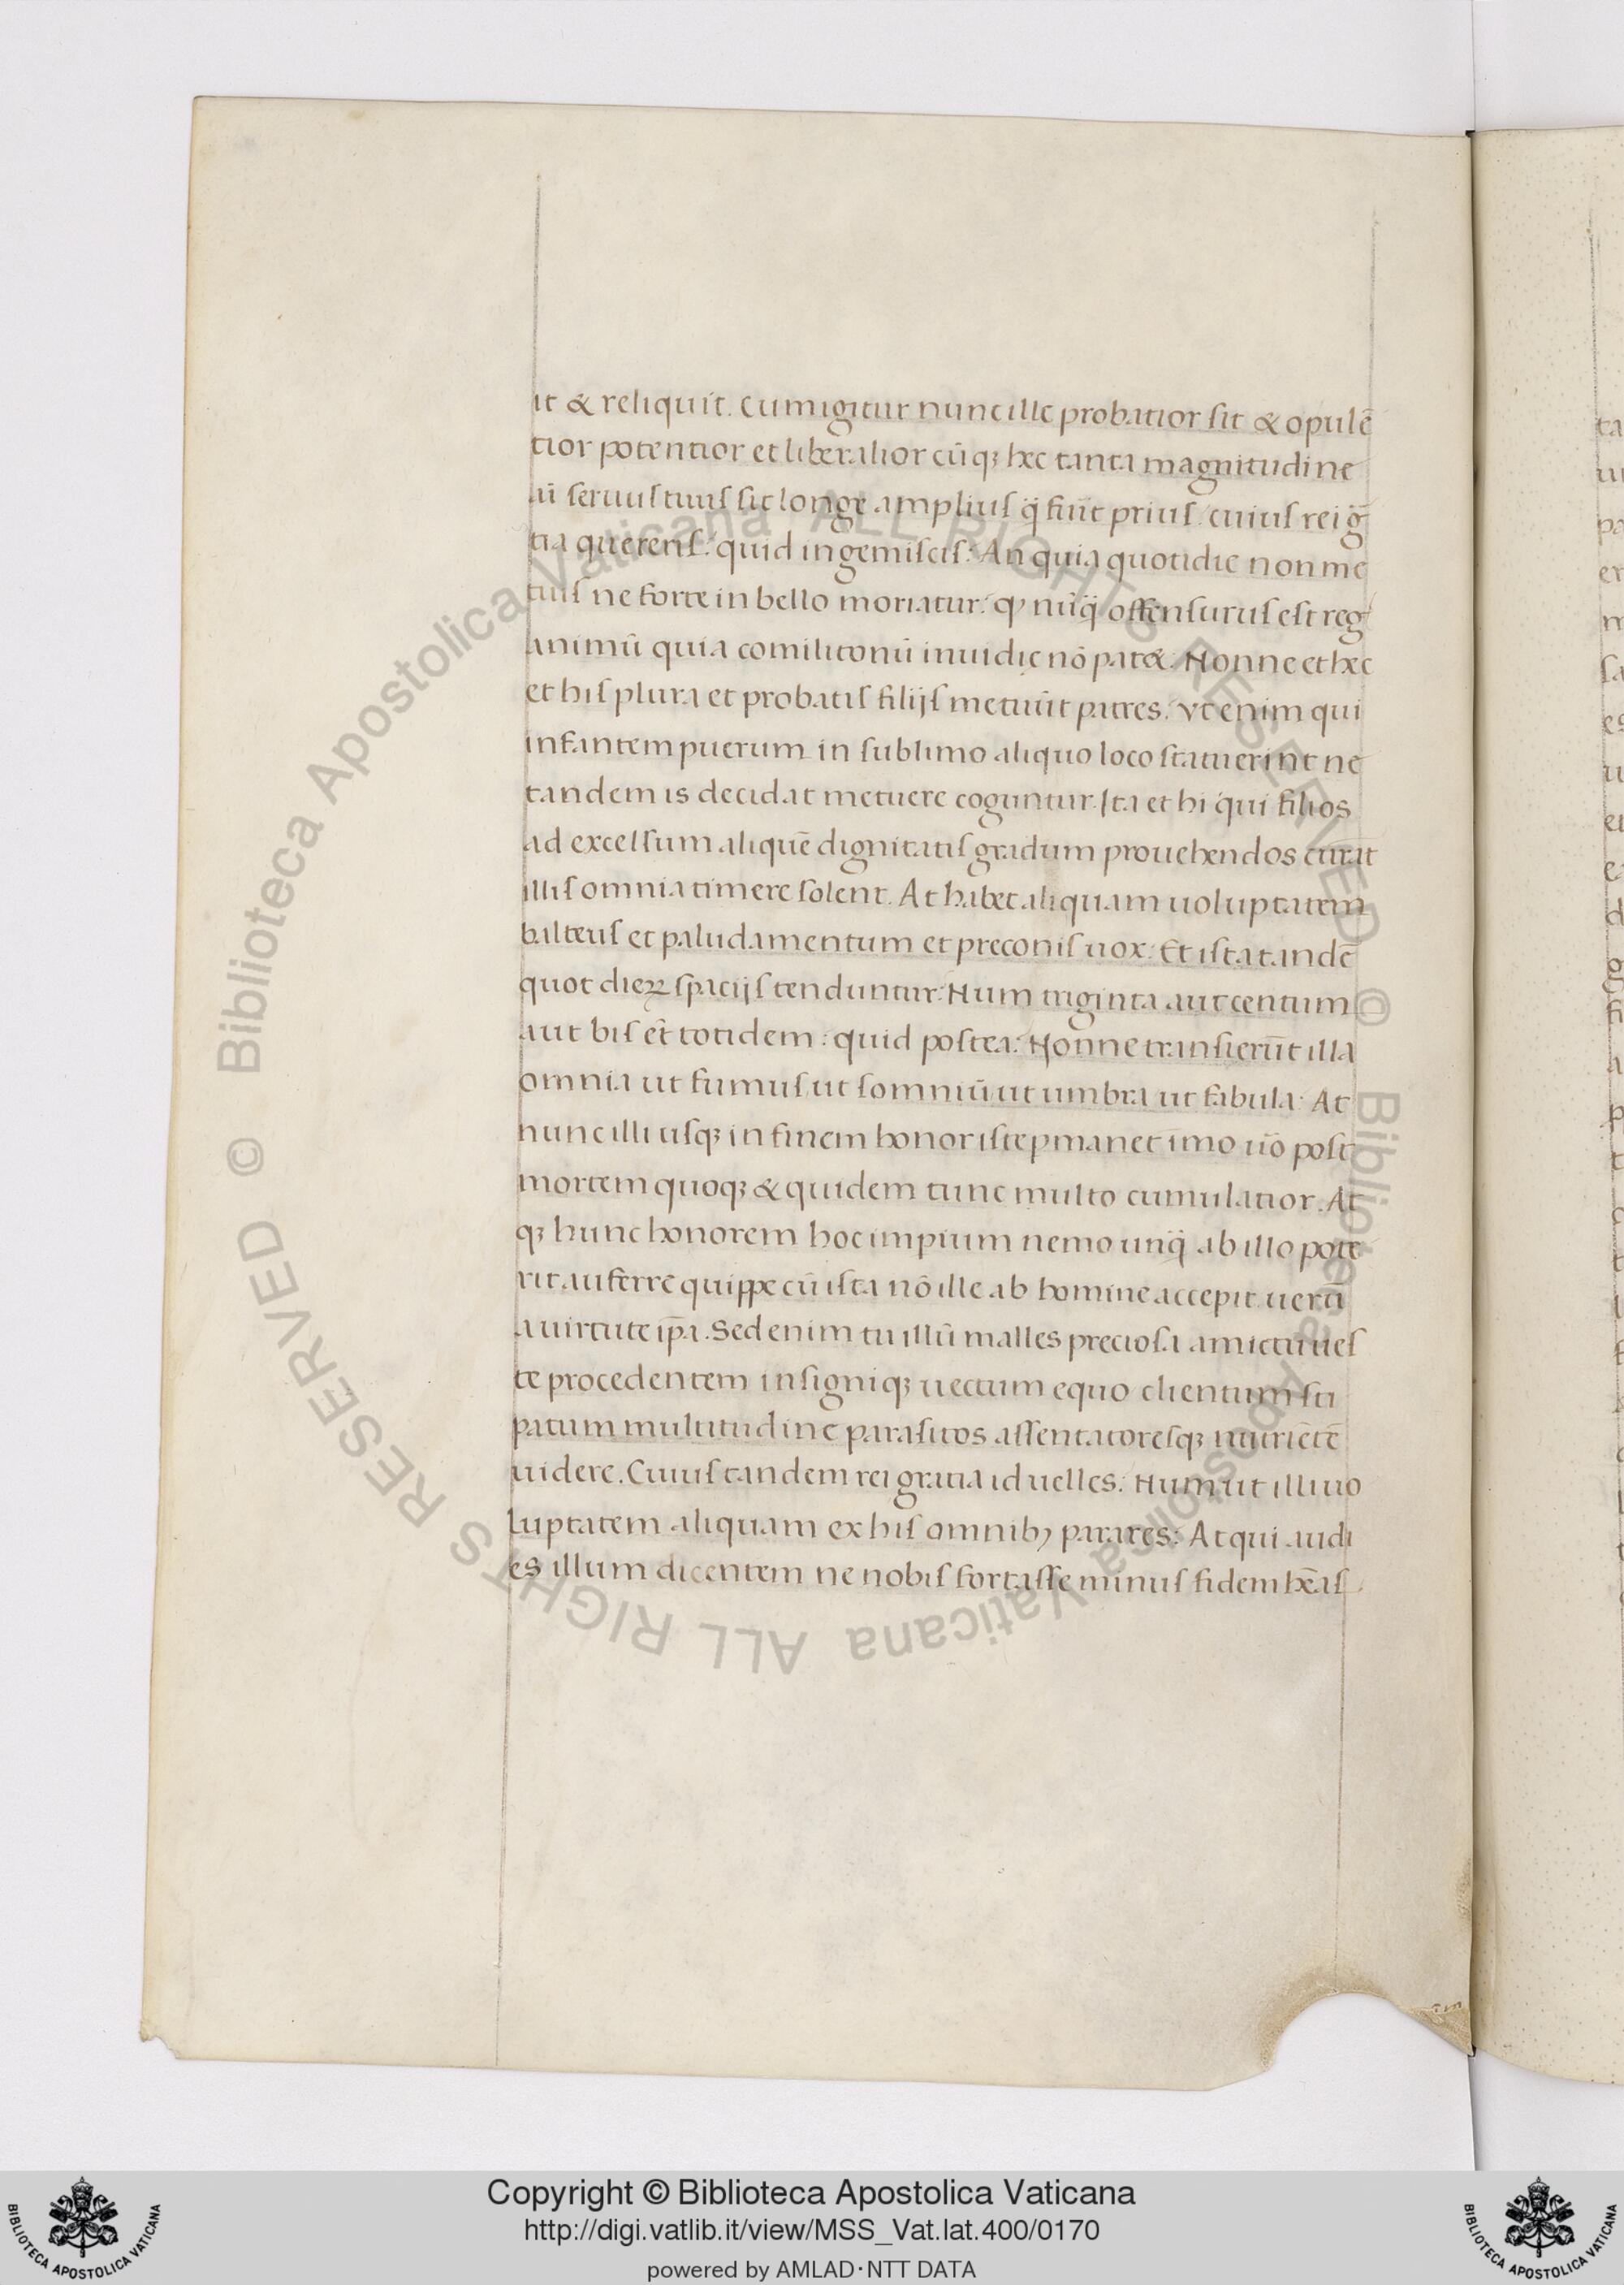 it & reliquit. Cum igitur nunc ille probatior sit & opulē
tior potentior et liberalior cūqꝫ hec tanta magnitudine
ū seruus tuus sit longe amplius q̄ fiūt prius. cuius rei ḡ
tia querens: quid ingemiscis: An quia quotidie non me
tuis ne forte in bello moriatur: ꝙ nūq̄ offensurus est reg
animū quia comilitonū inuidie nō pat&. Nonne et hec
et his plura et probatis filijs metuūt patres. Vt enim qui
infantem puerum in sublimo aliquo loco statuerint ne
tandem is decidat metuere coguntur. Ita et hi qui filios
ad excelsum aliquē dignitatis gradum prouehendos curāt
illis omnia timere solent. At habet aliquam uoluptatem
balteus et paludamentum et preconis uox. Et ista tandē
quot dieꝝ spacijs tenduntur: Num triginta aut centum
aut bis et totidem: quid postea: Nonne transierūt illa
omnia ut fumus ut somniū ut umbra ut fabula. At
nunc illi usqꝫ in finem honor iste ꝑmanet imo uō post
mortem quoqꝫ & quidem tunc multo cumulatior. At
qꝫ hunc honorem hoc impium nemo unq̄ ab illo pote
rit auferre quippe cū ista nō ille ab homine accepit uerū
a uirtute ip̄a. Sed enim tu illū malles preciosa amictū ues
te procedentem insigniqꝫ uectum equo clientum sti
patum multitudine parasitos assentatoresqꝫ nutriētē
uidere. Cuius tandem rei gratia id uelles: Num ut illi uo
luptatem aliquam ex his omnibꝫ parares: Atqui audi
es illum dicentem ne nobis fortasse minus fidem hēas
Copyright © Biblioteca Apostolica Vaticana
http://digi.vatlib.it/view/MSS_Vat.lat.400/0170
powered by AMLAD·NTT DATA
BIBLIOTECA APOSTOLICA VATICANA
BIBLIOTECA APOSTOLICA VATICANA
© Biblioteca Apostolica Vaticana ALL RIGHTS RESERVED © Biblioteca Apostolica Vaticana ALL RIGHTS RESERVED